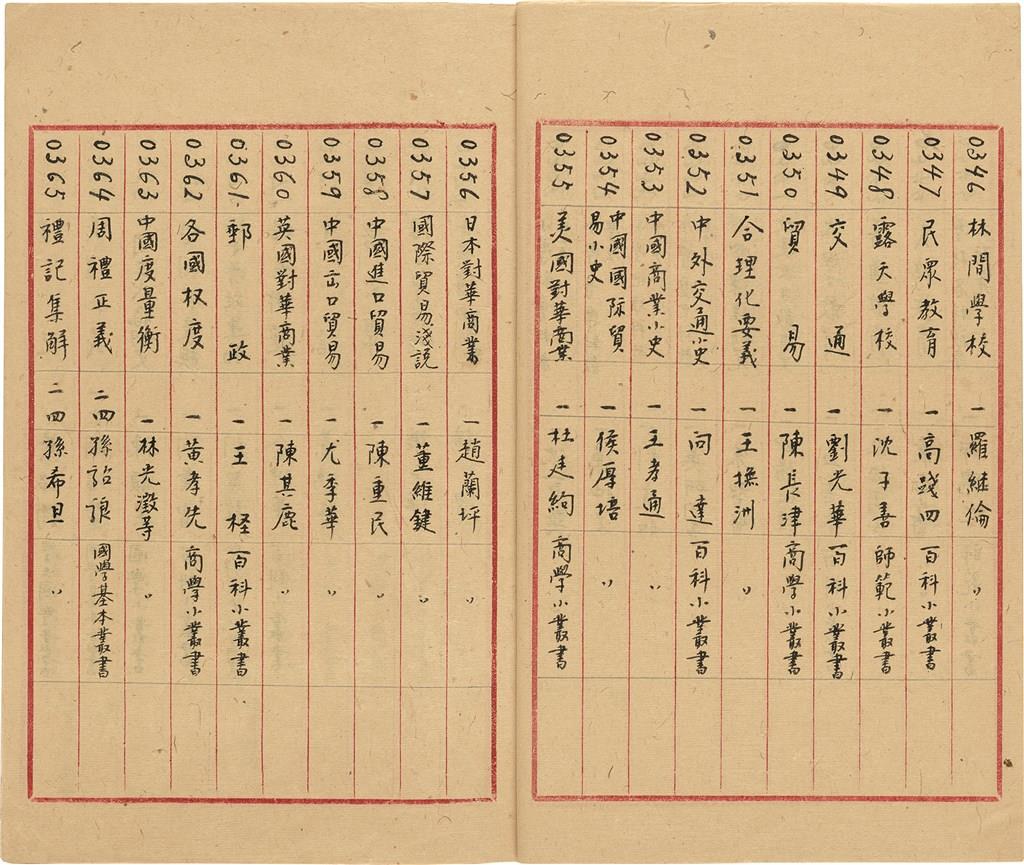 0346 林間學校 一 羅繼倫 〃
0347 民眾教育 一 高踐四 百科小叢書
0348 露天學校 一 沈子善 師範小叢書
0349 交通 一 劉光華 百科小叢書
0350 貿易 一 陳長津 商學小叢書
0351 合理化要義 一 王撫洲 〃
0352 中外交通小史 一 向達 百科小叢書
0353 中國商業小史 一 王孝通 〃
0354 中國國际貿易小史 一 侯厚培 〃
0355 美國對華商業 一 杜廷絢 商學小叢書
0356 日本對華商業 一 趙蘭坪 〃
0357 國際貿易淺説 一 董維鍵 〃
0358 中國進口貿易 一 陳重民 〃
0359 中國出口貿易 一 尤季華 〃
0360 英國對華商業 一 陳其鹿 〃
0361 郵政 一 王檉 百科小叢書
0362 各國权度 一 黃孝先 商學小叢書
0363 中國度量衡 一 林光澂等 〃
0364 周禮正義 二四 孫詒讓 國學基本叢書
0365 禮記集解 二四 孫希旦 〃